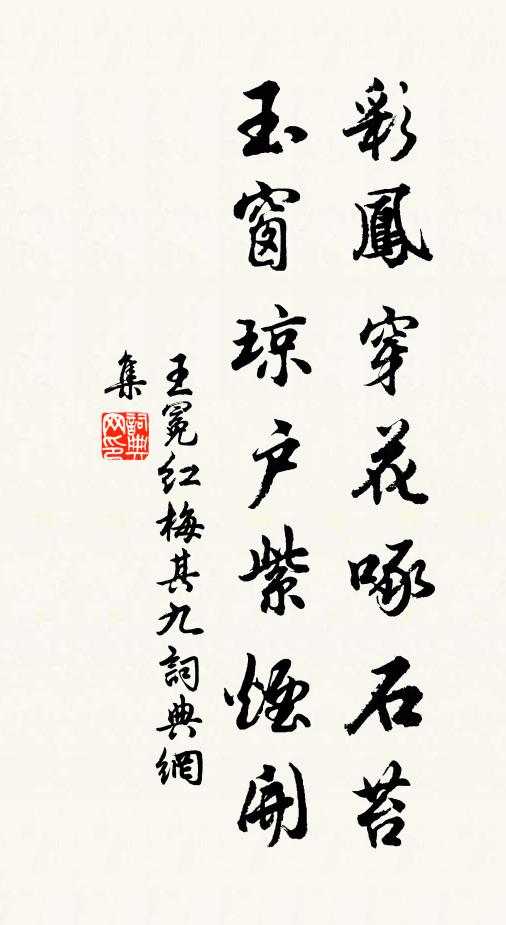 彩鳳穿花啄石苔
玉窗琼户紫煙開
王冕红梅其九詞典網
集
詞典网印